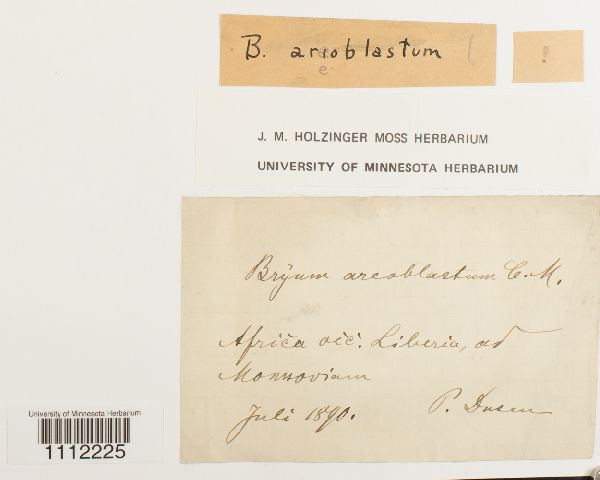 B. arcoblastum
e
!
J. M. HOLZINGER MOSS HERBARIUM
UNIVERSITY OF MINNESOTA HERBARIUM
Brÿum arcoblastum C. M.
Africa occ. Liberia, ad
Monroviam
Juli 1890. P. Dusen
University of Minnesota Herbarium
1112225